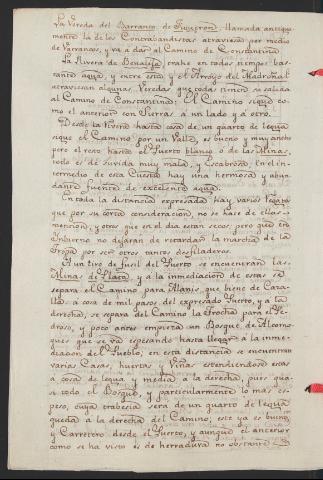 La Vereda del Barranco de Figueron, llamada antigua
mente la de los Contrabandistas atraviesa por medio
de barrancos, y va à dar al Camino de Constantina
La Rivera de Benalija trahe en todos tiempos bas-
tante agua, y entre esta y el Arroyo del Madroñal
atraviesan algunas Veredas que todas tienen su salida
al Camino de Constantina: El Camino sigue co-
mo el anterior con Sierras à un lado y à otro.
Desde la Rivera hasta cosa de un quarto de legua
sigue el Camino por un Valle, es bueno y muy ancho
pero el resto hasta el Puerto blanco ò de las Minas,
todo es de suvida muy mala, y Escabrosa. En el in-
termedio de esta Cuesta hay una hermosa y abun
dante fuente de excelente agua.
En toda la distancia expresada hay varios Regatos
que por su corta consideracion, no se hace de ellos
mencion, y otros que en el dia estan secos, pero que en
Imbierno no dejaràn de retardar la marcha de la
Tropa por ser otros tantos desfiladeros.
A un tiro de fusil del Puerto se encuentran las
Minas de Plata, y à la inmediacion de estas se
separa el Camino para Alanis, que viene de Caza-
lla: à cosa de mil pasos del expresado Puerto, y à la
derecha, se separa del Camino la Trocha para Pe-
droso, y poco antes empieza un Bosque de Alcorno-
ques que se va espesando hasta llegar à la inme-
diacion del Pueblo, en esta distancia se encuentran
varias Casas, huertas y Viñas estendiendose estas
à cosa de legua y media à la derecha, pues qua-
si todo el Bosque, y particularmente lo mas es-
peso, cuya trabesia serà de un quarto de legua
queda à la derecha del Camino, este ya es bueno
y Carretero desde el Puerto, y aunque el anterior
como se ha visto es de herradura no obstante